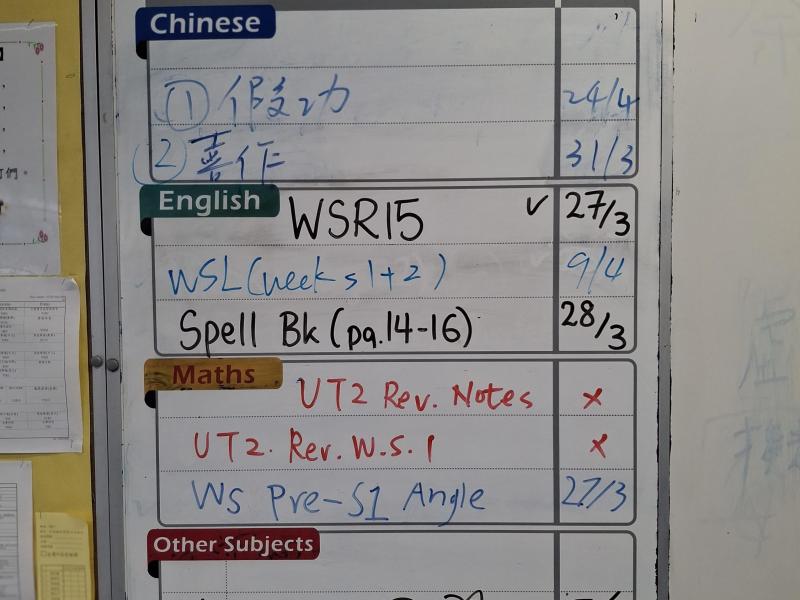 Chinese
① 假功 24/4
② 喜作 31/3
English
WSR15 ✓ 27/3
WSL (weeks 1+2) 9/4
Spell Bk (pg.14-16) 28/3
Maths
UT2 Rev. Notes ×
UT2. Rev. W.S. 1 ×
Ws Pre-S1 Angle 27/3
Other Subjects